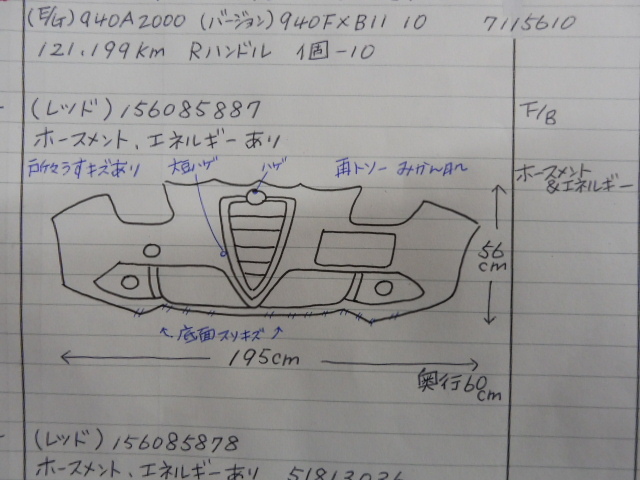 (E/G) 940A2000 (バージョン) 940FXB11 10 7115610
121.199km Rハンドル 1個-10
(レッド) 156085887 F/B
ホースメント、エネルギーあり
所々うすキズあり ハゲ 再トソー みかんハダ ホースメント
&エネルギー
56
cm
底面スリキズ
195cm
奥行60
cm
(レッド) 156085878
ホースメント、エネルギーあり